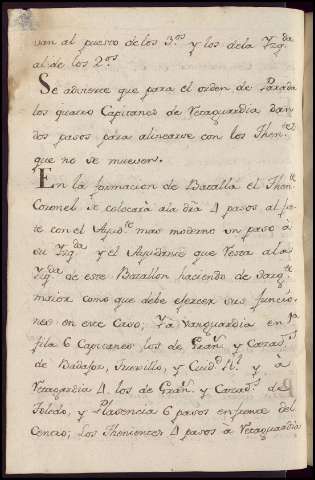 van al puesto delos 3.os y los dela Yzq.da
al de los 2.os
Se advierte que para el orden de Parada
los quatro Capitanes de Retaguardia dan
dos pasos para alinearse con los Then.tes
que no se mueven.
En la formacion de Batalla el Then.te
Coronel se colocará ala dra 4 pasos al fren
te con el Ayud.te mas moderno un paso à
su Yzq.da y el Ayudante que resta ala
Yzq.da de este Batallon haciendo de sarg.to
maior como que debe ejercer sus funcio
nes en este caso; Ya Vanguardia en 1.a
fila 6 Capitanes los de Gran.s y Cazad.s
de Badajos, Truxillo, y Ciud.d R.l y à
Retaguardia 4, los de Gran.s y Cazad.s de
Toledo, y Plasencia 6 pasos enfrente del
Centro; Los Thenientes 4 pasos à Retaguardia